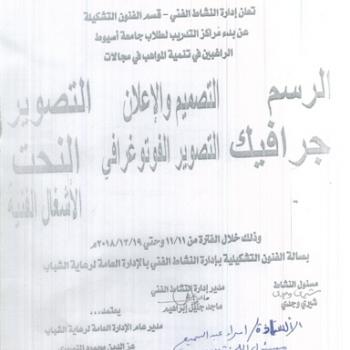 تعلن إدارة النشاط الفني - قسم الفنون التشكيلة
عن بدء مراكز التدريب لطلاب جامعة أسيوط
الراغبين في تنمية المواهب في مجالات
الرسم التصميم والإعلان التصوير
جرافيك التصوير الفوتوغرافي النحت
الأشغال الفنية
وذلك خلال الفترة من ١١/١١ وحتي ٢٠١٨/١٢/١٩
بصالة الفنون التشكيلية بإدارة النشاط الفني بالإدارة العامة لرعاية الشباب
مسئول النشاط مدير إدارة النشاط الفني
شيري وجدي ماجد جليل إبراهيم
يعتمد...
مدير عام الإدارة العامة لرعاية الشباب
عز الدين محمود
الأستاذة / إسراء عبد السميع